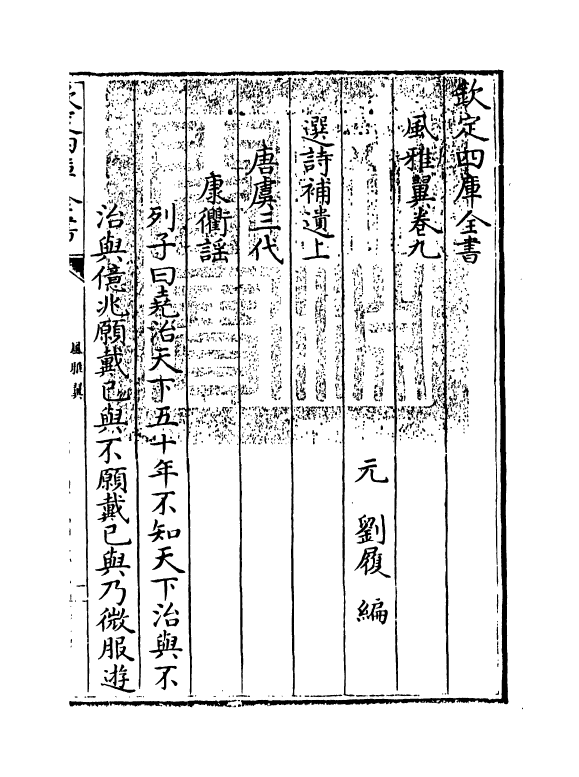 欽定四庫全書
風雅翼卷九
元 劉履 編
選詩補遺上
唐虞三代
康衢謡
列子曰堯治天下五十年不知天下治與不
治與億兆願戴已與不願戴已與乃微服遊
風雅翼